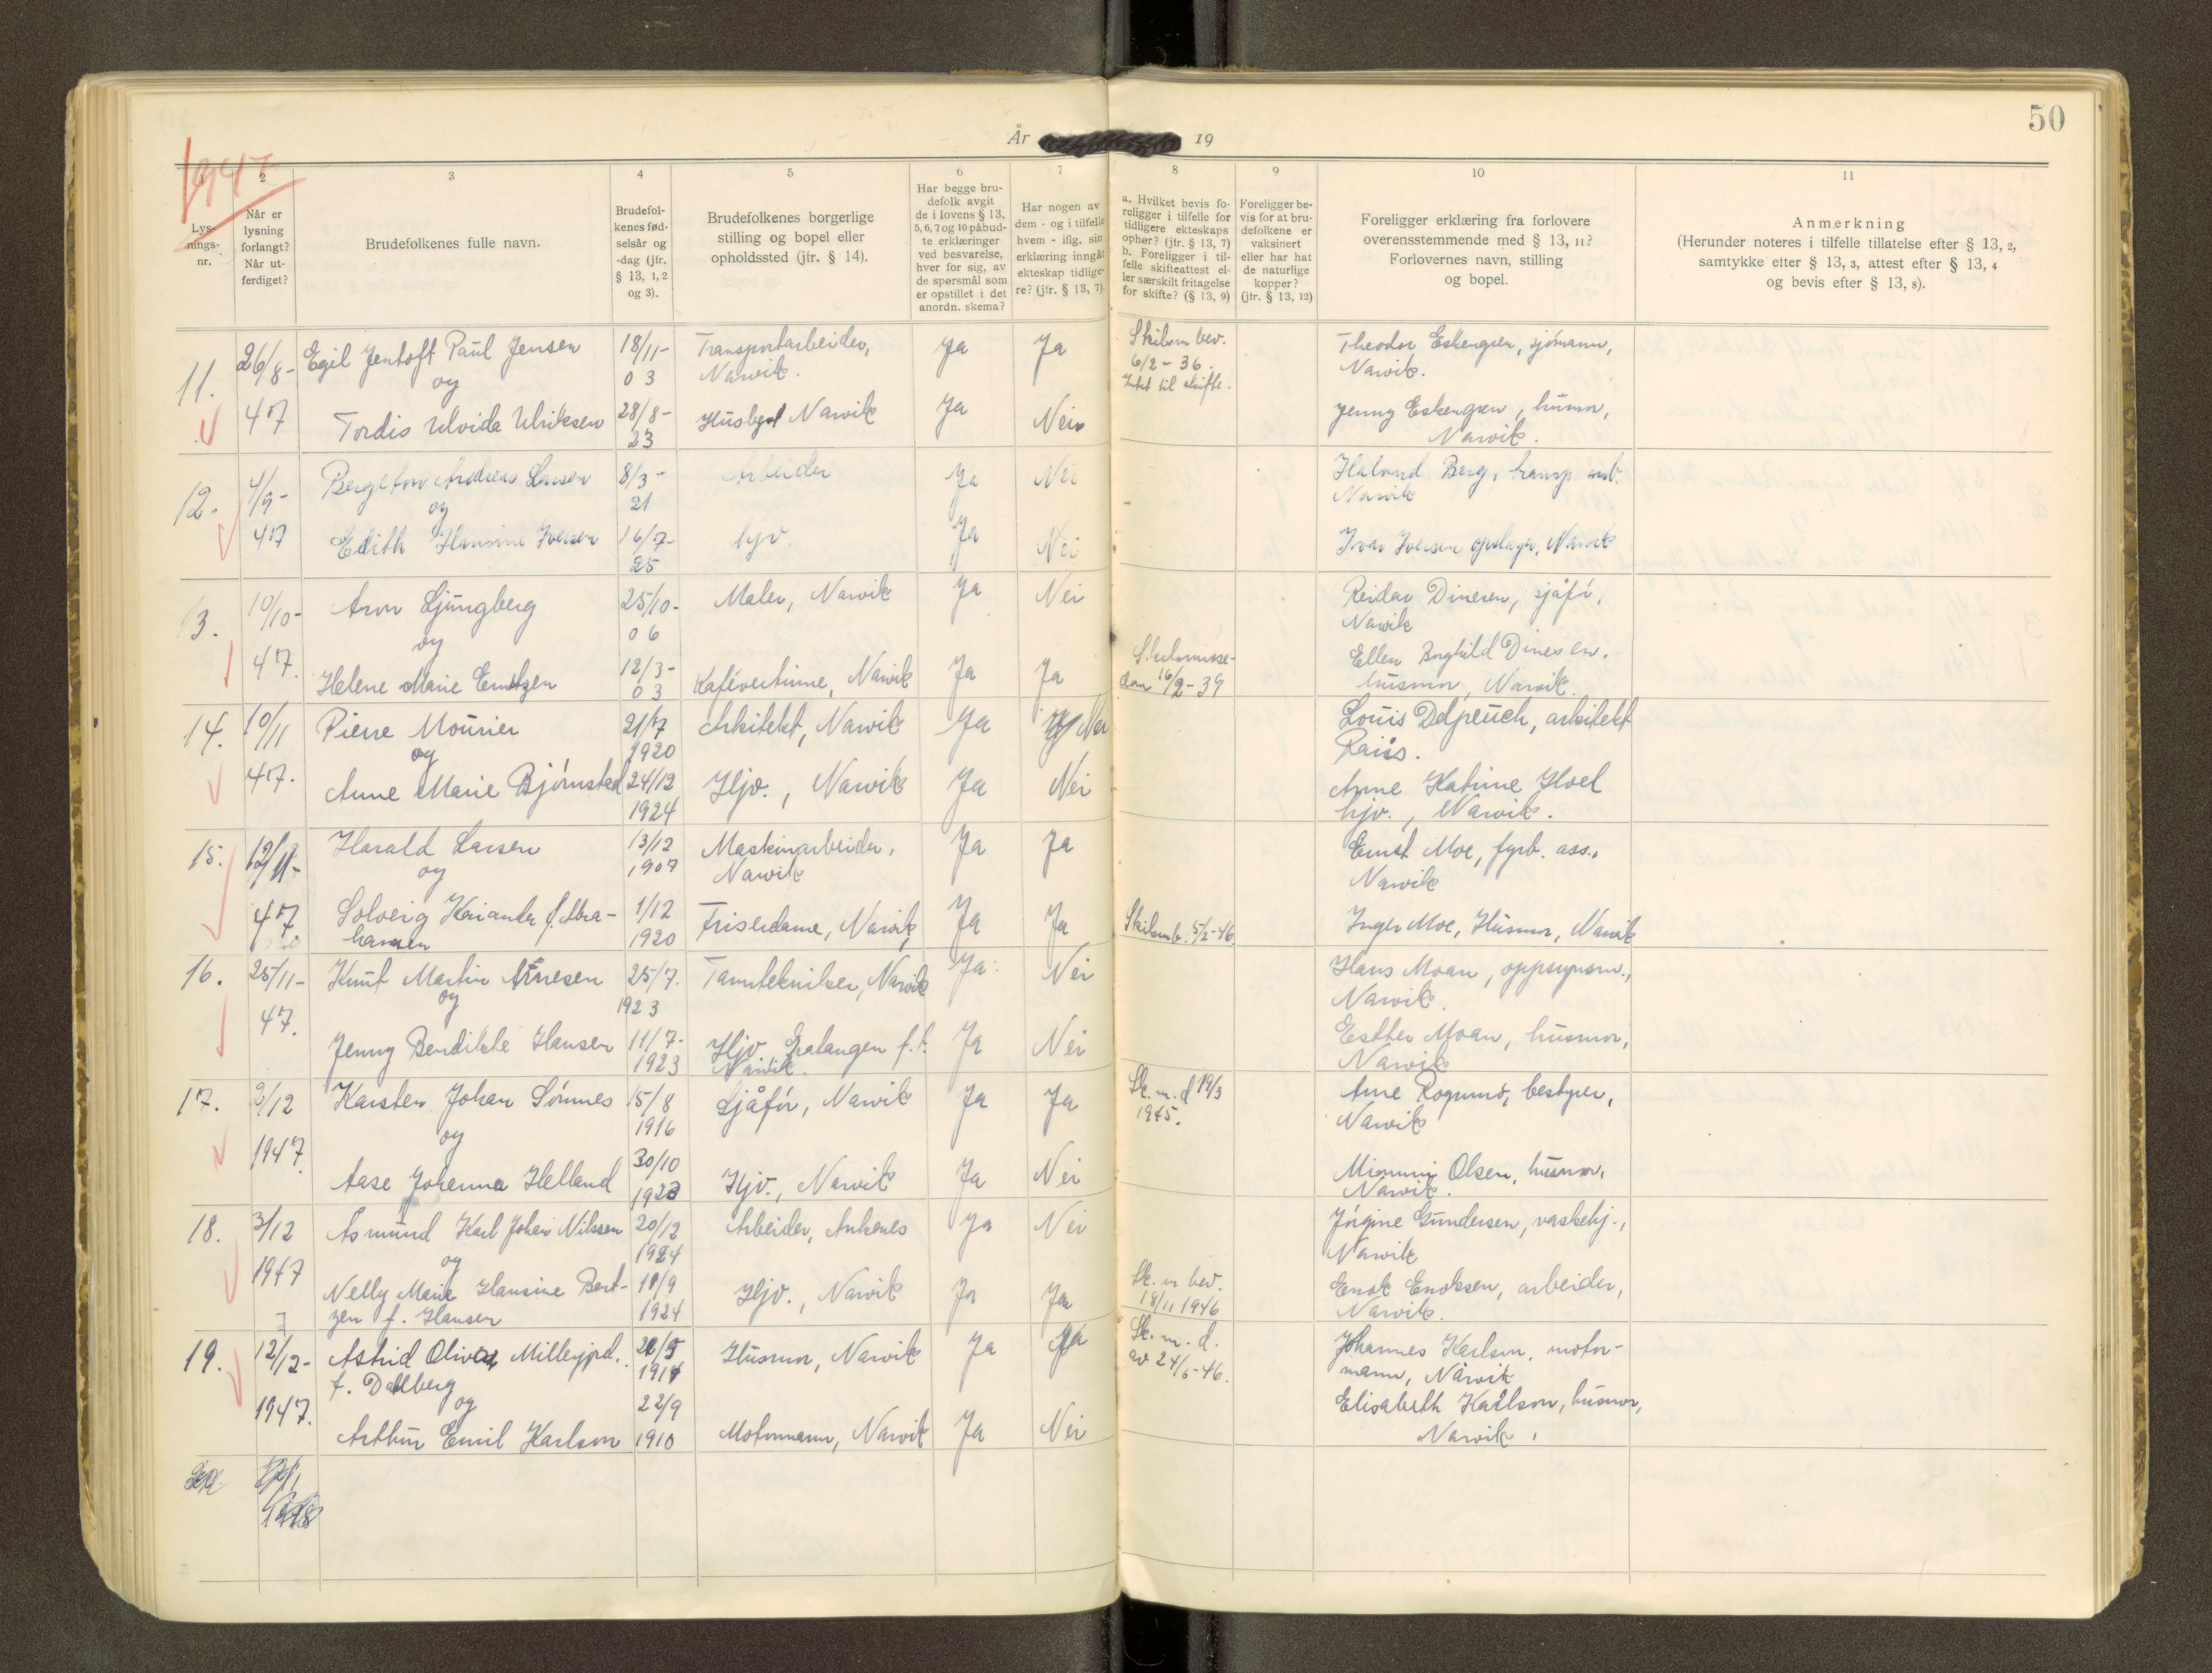 50
År 19
1947
1
Lys-
nings-
nr.
2
Når er
lysning
forlangt?
Når ut-
ferdiget?
3
Brudefolkenes fulle navn.
4
Brudefol-
kenes fød-
selsår og
-dag (jfr.
§ 13, 1, 2
og 3).
5
Brudefolkenes borgerlige
stilling og bopel eller
opholdssted (jfr. § 14).
6
Har begge bru-
defolk avgit
de i lovens § 13,
5, 6, 7 og 10 påbud-
te erklæringer
ved besvarelse,
hver for sig, av
de spørsmål som
er opstillet i det
anordn. skema?
7
Har nogen av
dem - og i tilfelle
hvem - iflg. sin
erklæring inngåt
ekteskap tidlige-
re? (jfr. § 13, 7).
8
a. Hvilket bevis fo-
religger i tilfelle for
tidligere ekteskaps
ophør? (jfr. § 13, 7)
b. Foreligger i til-
felle skifteattest el-
ler særskilt fritagelse
for skifte? (§ 13, 9)
9
Foreligger be-
vis for at bru-
defolkene er
vaksinert
eller har hat
de naturlige
kopper?
(jfr. § 13, 12)
10
Foreligger erklæring fra forlovere
overensstemmende med § 13, 11?
Forlovernes navn, stilling
og bopel.
11
Anmerkning
(Herunder noteres i tilfelle tillatelse efter § 13, 2,
samtykke efter § 13, 3, attest efter § 13, 4
og bevis efter § 13, 8).
11. 26/8- Egil Jentoft Paul Jensen 18/11- Transportarbeider, Ja Ja Skilsm bev. Theodor Eskengren, sjømann,
og 03 Narvik. 6/2-36. Narvik.
Intet til skifte.
47 Tordis Ulvida Ulriksen 28/8- Husbest Narvik Ja Nei Jenny Eskengren, husm,
23 Narvik.
12. 4/9- Bergeton Andreas Larsen 8/3- Arbeider Ja Nei Halvard Berg, transp arb.
og 21 Narvik
47 Edith Hansine Iversen 16/7- hjv. Ja Nei Ivar Iversen, Narvik
25
13. 10/10- Aron Ljungberg 25/10- Maler, Narvik Ja Nei Reidar Dinesen, sjåfør,
og 06 Narvik
47. Helene Marie Erntzen 12/3- Kafévertinne, Narvik Ja Ja 16/2-39 Ellen Borghild Dinesen.
03 husmor, Narvik.
14. 10/11 Pierre Mourier 21/7 Arkitekt, Narvik Ja Nei Louis Delpeuch, arkitekt
og 1920
47. Anne Marie Bjørnstad 24/12 Hjv., Narvik Ja Nei Anne Katrine Hoel
1924 hjv., Narvik.
15. 12/11- Harald Larsen 13/12 Maskinarbeider, Ja Ja Ernst Moe, fyrb. ass.,
og 1907 Narvik Narvik
47 Solveig f. Abra- 1/12 Friserdame, Narvik, Ja Ja Skilsmb. 5/2-46 Inger Moe, Husmor, Narvik
hamsen 1920
16. 25/11- Knut Martin Arnesen 25/7. Tanntekniker, Narvik Ja. Nei Hans Moan, oppsynsm.,
og 1923 Narvik.
47. Jenny Bendikte Hansen 11/7- Hjv. Gratangen f.t. Ja Nei Esther Moan, husmor,
1923 Narvik. Narvik
17. 2/12 Karsten Johan Sømnes 15/8 Sjåfør, Narvik Ja Ja Sk. m. d 19/3 Arne Rognmo, bestyrer,
og 1916 1945. Narvik
1947. Aase Johanna Helland 30/10 Hjv., Narvik Ja Nei Mimmi Olsen, husmor,
1923 Narvik.
18. 3/12 Åsmund Karl Johan Nilssen 20/12 Arbeider, Ankenes Ja Nei Jørgine Gundersen, vaskehj.,
og 1924 Narvik
1947 Nelly Marie Hansine Bert- 19/9 Hjv., Narvik Ja Ja Sk. m bev. Enok Enoksen, arbeider,
zen f. Hansen 1924 18/11 1946 Narvik.
19. 12/12- Astrid Oliver Millerjord. Husmor, Narvik Ja Ja Sk. m. d. Johannes Karlson, motor-
f. Dahlberg 1914 av 24/6-46. mann, Narvik
og
1947. Arthur Emil Karlson 22/9 Motormann, Narvik Ja Nei Elisabeth Karlson, husmor,
1910 Narvik.